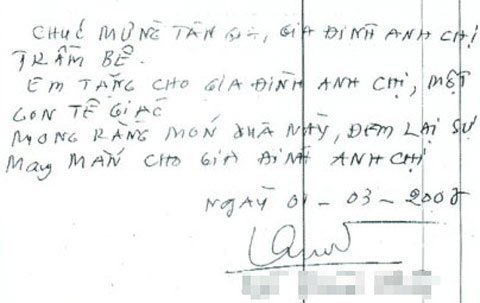 CHÚC MỪNG TÂN GIA, GIA ĐÌNH ANH CHỊ
TRẦM BÊ.
EM TẶNG CHO GIA ĐÌNH ANH CHỊ, MỘT
CON TÊ GIÁC
MONG RẰNG MÓN QUÀ NÀY, ĐEM LẠI SỰ
MAY MẮN CHO GIA ĐÌNH ANH CHỊ
NGÀY 01 - 03 - 2007